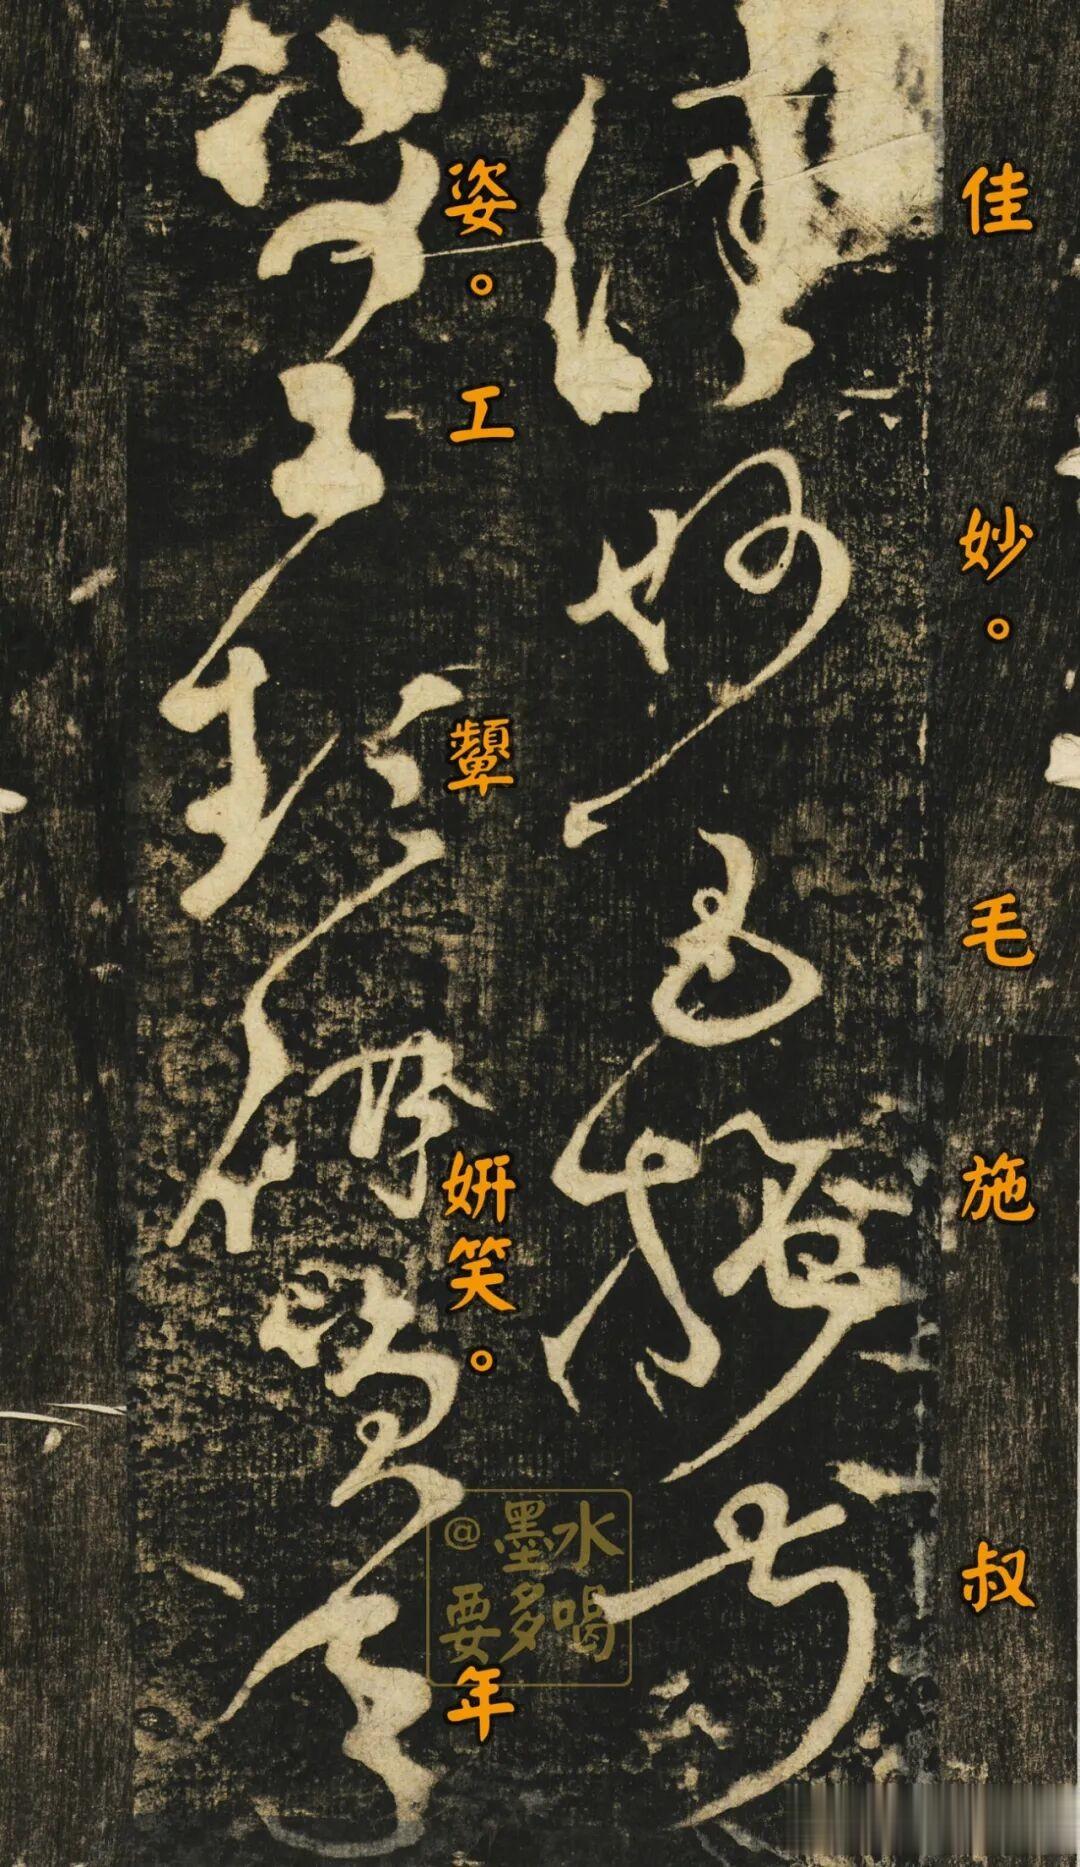 佳妙。毛施叔
姿。工顰妍笑。年
@墨水
要多喝